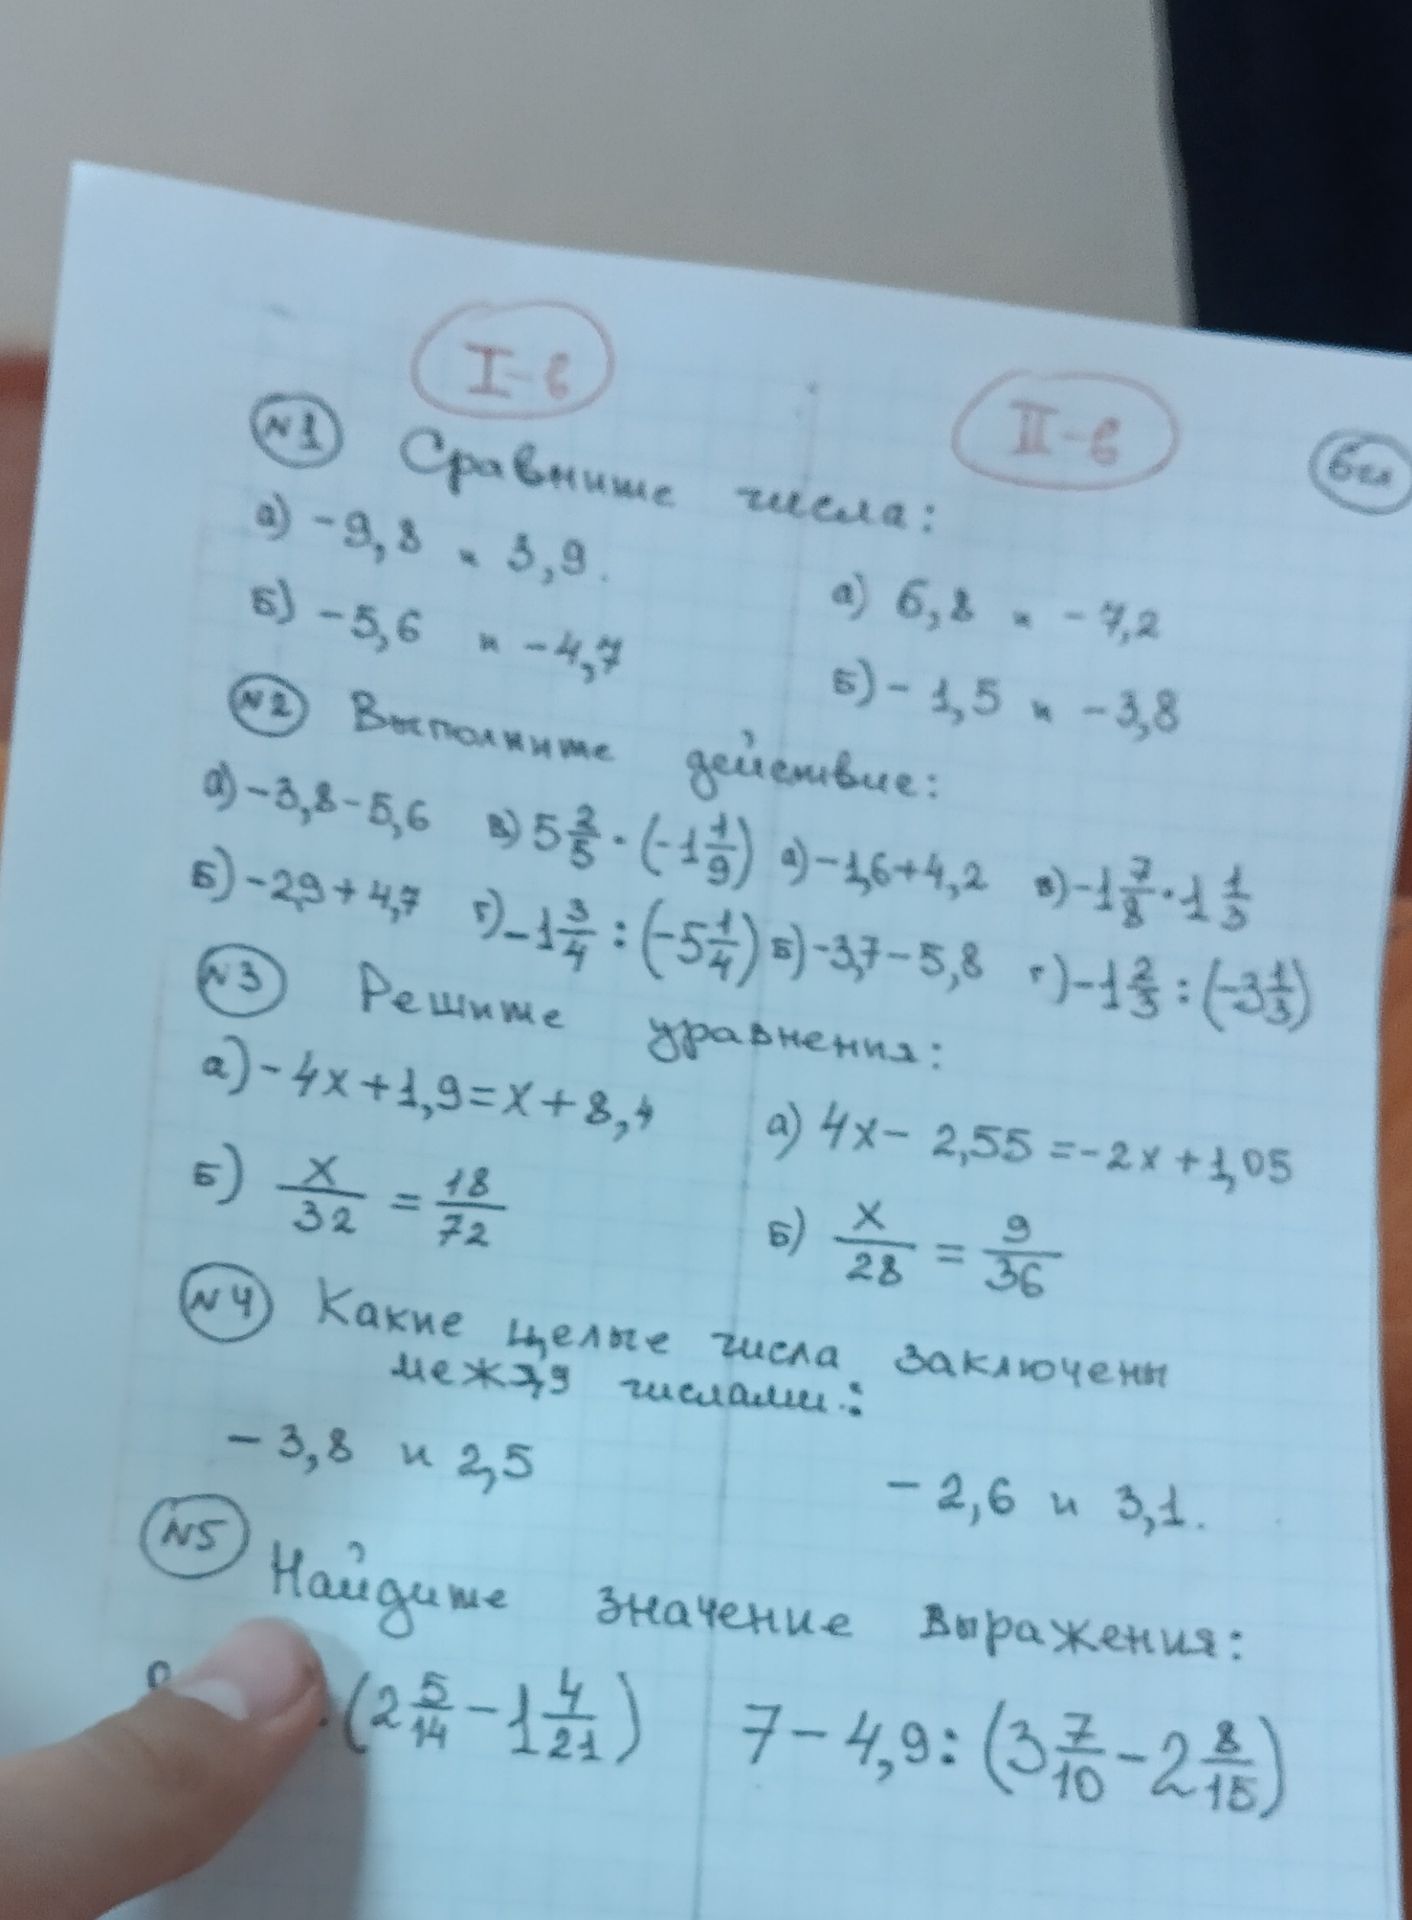 I-в II-в 6кл
№1 Сравните числа:
а) -9,8 и 3,9. а) 6,8 и -7,2
Б) -5,6 и -4,7 Б) -1,5 и -3,8
№2 Выполните действие:
а) -3,8-5,6 в) 5 2/5 · (-1 1/9) а) -1,6+4,2 в) -1 7/8 · 1 1/3
Б) -2,9+4,7 г) -1 3/4 : (-5 1/4) Б) -3,7-5,8 г) -1 2/3 : (-3 1/3)
№3 Решите уравнения:
а) -4x+1,9=x+8,4 а) 4x-2,55=-2x+1,05
Б) x/32 = 18/72 Б) x/28 = 9/36
№4 Какие целые числа заключены
между числами:
-3,8 и 2,5 -2,6 и 3,1.
№5 Найдите значение выражения:
(2 5/14 - 1 4/21) 7-4,9:(3 7/10 - 2 8/15)